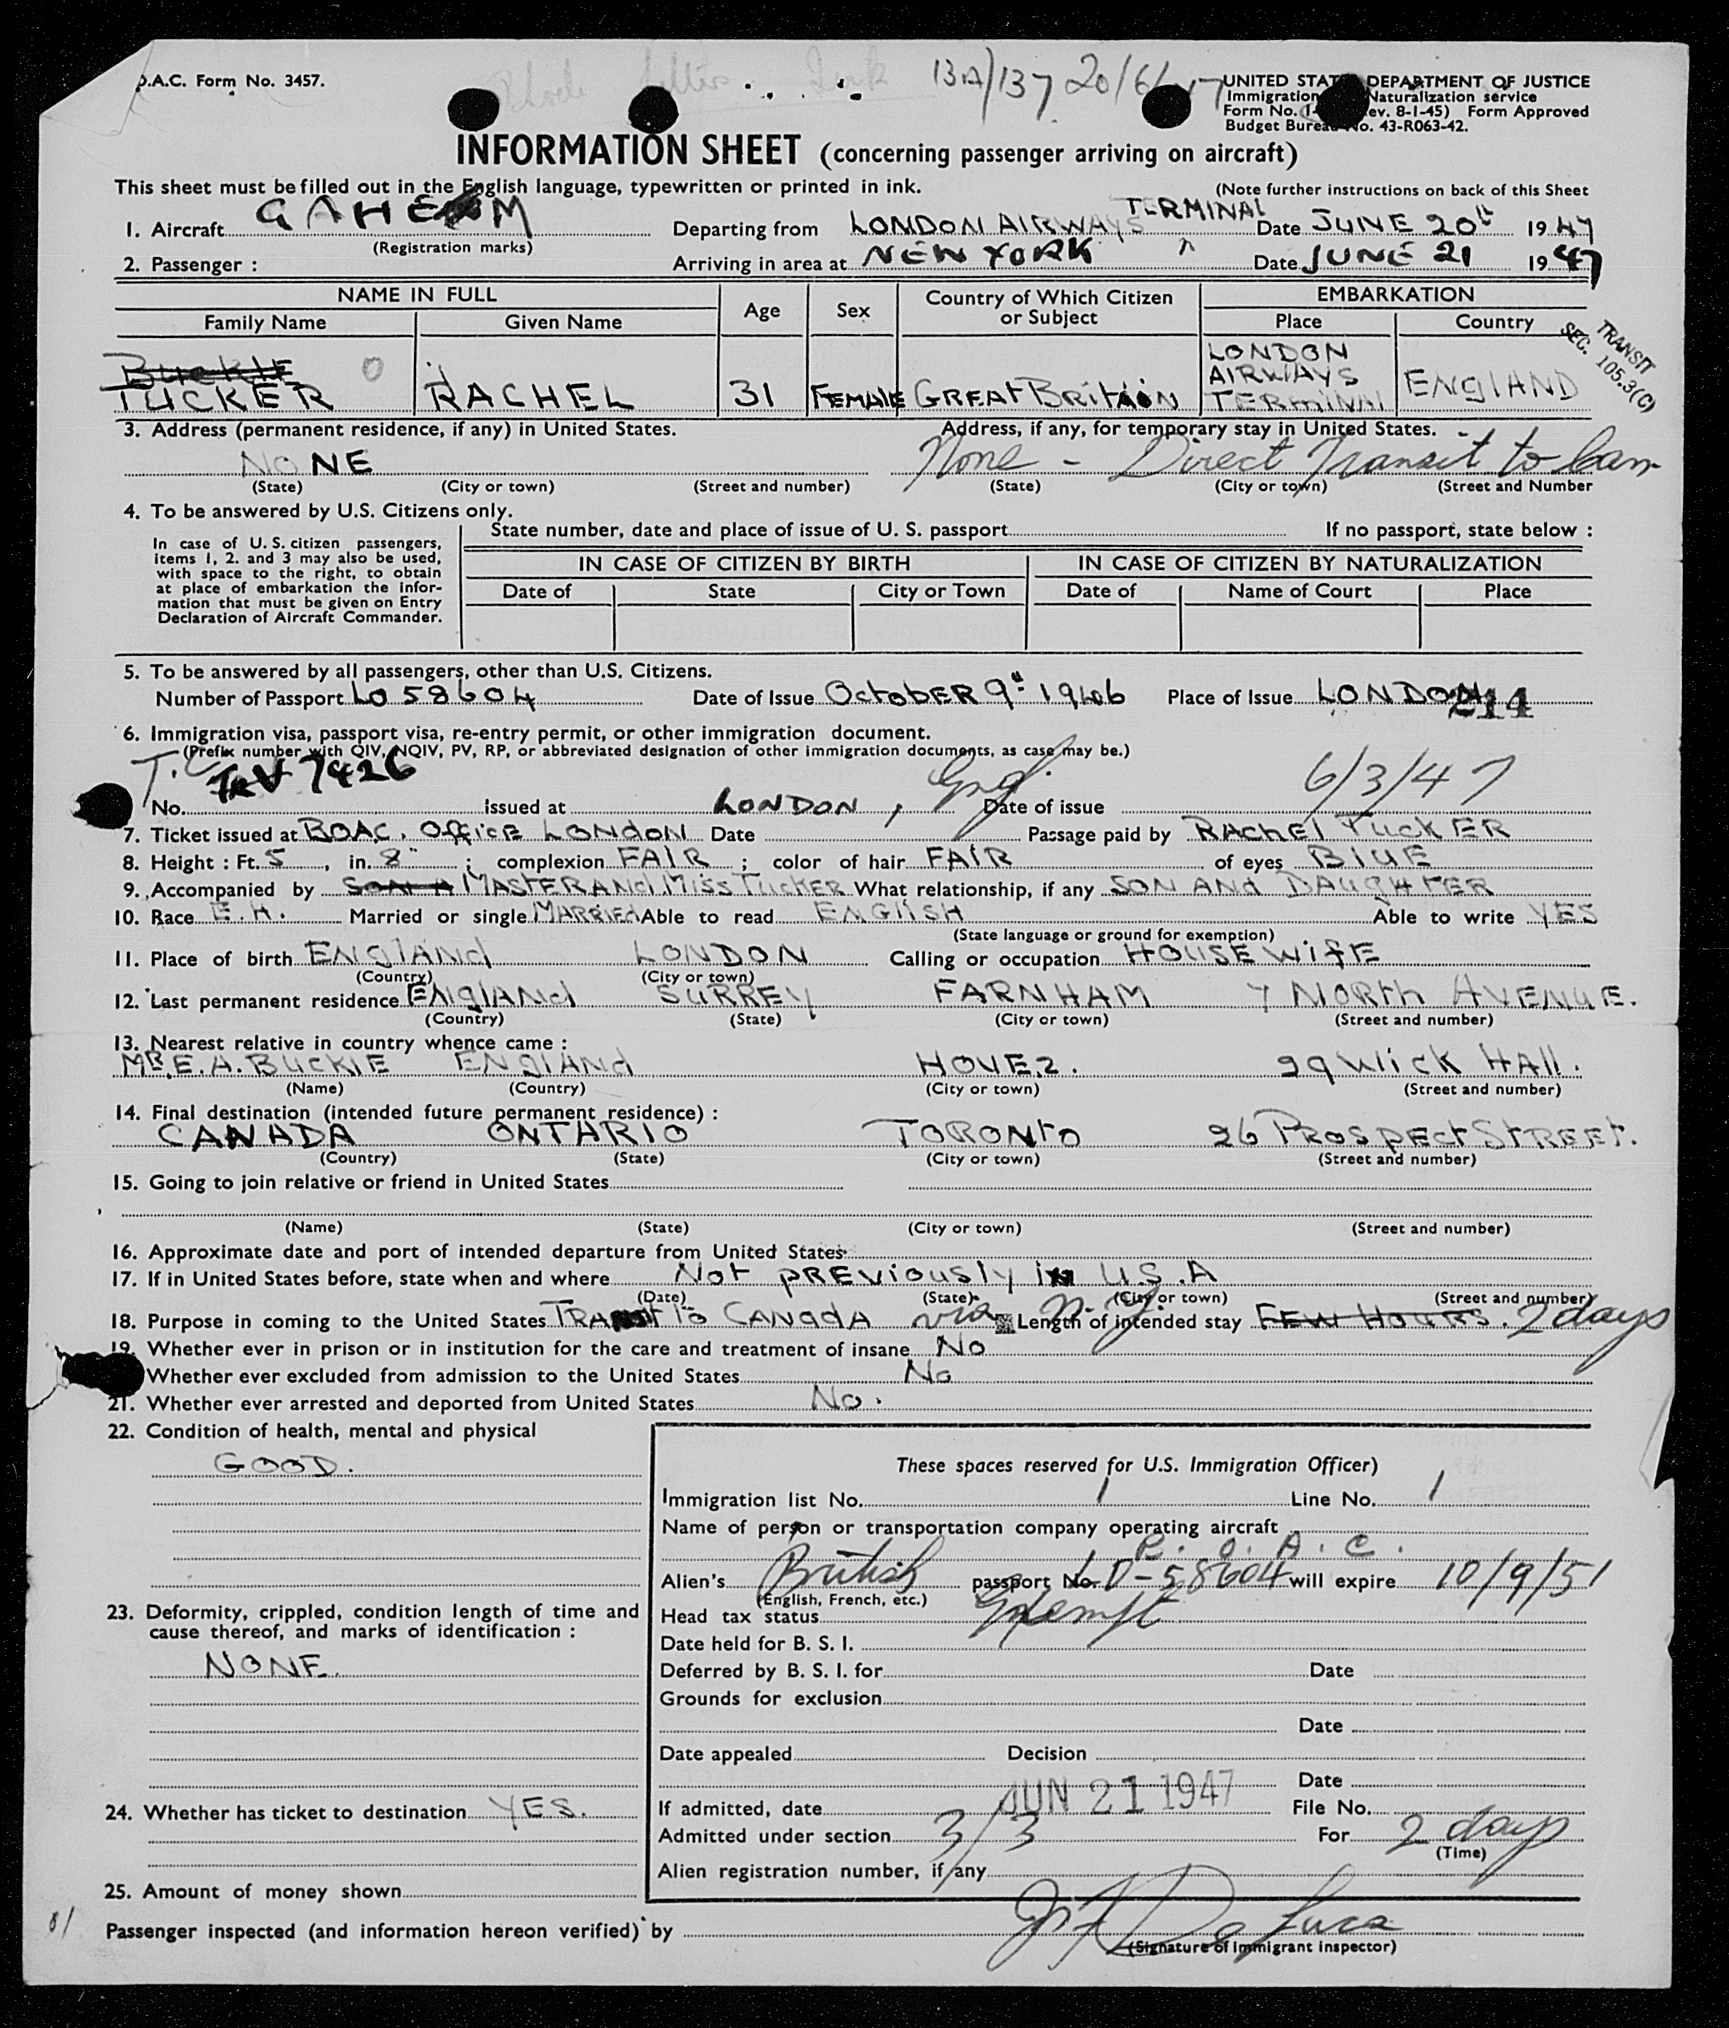 O.A.C. Form No. 3457.
13A/137 20/6/47
UNITED STATES DEPARTMENT OF JUSTICE
Immigration Naturalization service
Form No. I- ev. 8-1-45) Form Approved
Budget Bureau No. 43-R063-42.
INFORMATION SHEET (concerning passenger arriving on aircraft)
This sheet must be filled out in the English language, typewritten or printed in ink. (Note further instructions on back of this Sheet
1. Aircraft GAHEM Departing from LONDON AIRWAYS TERMINAL Date JUNE 20th 1947
(Registration marks)
2. Passenger : Arriving in area at NEW YORK Date JUNE 21 1947
NAME IN FULL Age Sex Country of Which Citizen or Subject EMBARKATION
Family Name Given Name Place Country
TRANSIT
SEC. 105.3(C)
BUCKIE
TUCKER RACHEL 31 FEMALE GREAT BRITAIN LONDON AIRWAYS TERMINAL ENGLAND
3. Address (permanent residence, if any) in United States. Address, if any, for temporary stay in United States.
NONE None - Direct Transit to Can
(State) (City or town) (Street and number) (State) (City or town) (Street and Number
4. To be answered by U.S. Citizens only.
State number, date and place of issue of U. S. passport If no passport, state below :
In case of U. S. citizen passengers,
items 1, 2. and 3 may also be used,
with space to the right, to obtain
at place of embarkation the infor-
mation that must be given on Entry
Declaration of Aircraft Commander.
IN CASE OF CITIZEN BY BIRTH IN CASE OF CITIZEN BY NATURALIZATION
Date of State City or Town Date of Name of Court Place
5. To be answered by all passengers, other than U.S. Citizens.
Number of Passport LO 58604 Date of Issue OCTOBER 9th 1946 Place of Issue LONDON 214
6. Immigration visa, passport visa, re-entry permit, or other immigration document.
(Prefix number with QIV, NQIV, PV, RP, or abbreviated designation of other immigration documents, as case may be.)
T.C. TRV 7426
No. Issued at LONDON, Eng. Date of issue 6/3/47
7. Ticket issued at BOAC. OFFICE LONDON Date Passage paid by RACHEL TUCKER
8. Height : Ft. 5 , in. 8" ; complexion FAIR ; color of hair FAIR of eyes BLUE
9. Accompanied by SON A MASTER AND MISS TUCKER What relationship, if any SON AND DAUGHTER
10. Race E.H. Married or single MARRIED Able to read ENGLISH Able to write YES
(State language or ground for exemption)
11. Place of birth ENGLAND LONDON Calling or occupation HOUSEWIFE
(Country) (City or town)
12. Last permanent residence ENGLAND SURREY FARNHAM 7 NORTH AVENUE.
(Country) (State) (City or town) (Street and number)
13. Nearest relative in country whence came :
MR. E. A. BUCKIE ENGLAND HOVE.2. 29 WICK HALL.
(Name) (Country) (City or town) (Street and number)
14. Final destination (intended future permanent residence) :
CANADA ONTARIO TORONTO 26 PROSPECT STREET.
(Country) (State) (City or town) (Street and number)
15. Going to join relative or friend in United States
(Name) (State) (City or town) (Street and number)
16. Approximate date and port of intended departure from United States
17. If in United States before, state when and where NOT PREVIOUSLY IN U.S.A
(Date) (State) (City or town) (Street and number)
18. Purpose in coming to the United States TRANSIT TO CANADA via N.Y. Length of intended stay FEW HOURS. 2 days
19. Whether ever in prison or in institution for the care and treatment of insane NO
Whether ever excluded from admission to the United States NO
21. Whether ever arrested and deported from United States NO.
22. Condition of health, mental and physical
GOOD.
23. Deformity, crippled, condition length of time and
cause thereof, and marks of identification :
NONE.
24. Whether has ticket to destination YES.
25. Amount of money shown
These spaces reserved for U.S. Immigration Officer)
Immigration list No. 1 Line No. 1
Name of person or transportation company operating aircraft
B. O. A. C.
Alien's British passport No. LO-58604 will expire 10/9/51
(English, French, etc.)
Head tax status Exempt
Date held for B. S. I.
Deferred by B. S. I. for Date
Grounds for exclusion
Date
Date appealed Decision
Date
If admitted, date JUN 21 1947 File No.
Admitted under section 3/3 For 2 days
(Time)
Alien registration number, if any
81
Passenger inspected (and information hereon verified) by J A De Luca
(Signature of Immigrant Inspector)